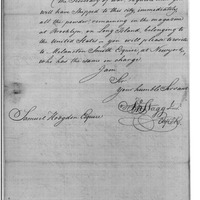 the Secretary of War
will have Shipped to this city immediately
all the powder remaining in the magazine
at Brooklyn on Long Island, belonging to
the United States you will please to write
to Melancton Smith Esquire, at Newyork,
who has the same in charge.
I am
Sir
Your humble Servant
Samuel Hodgdon Esquire